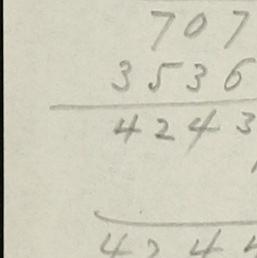 707
3536
4243
4244